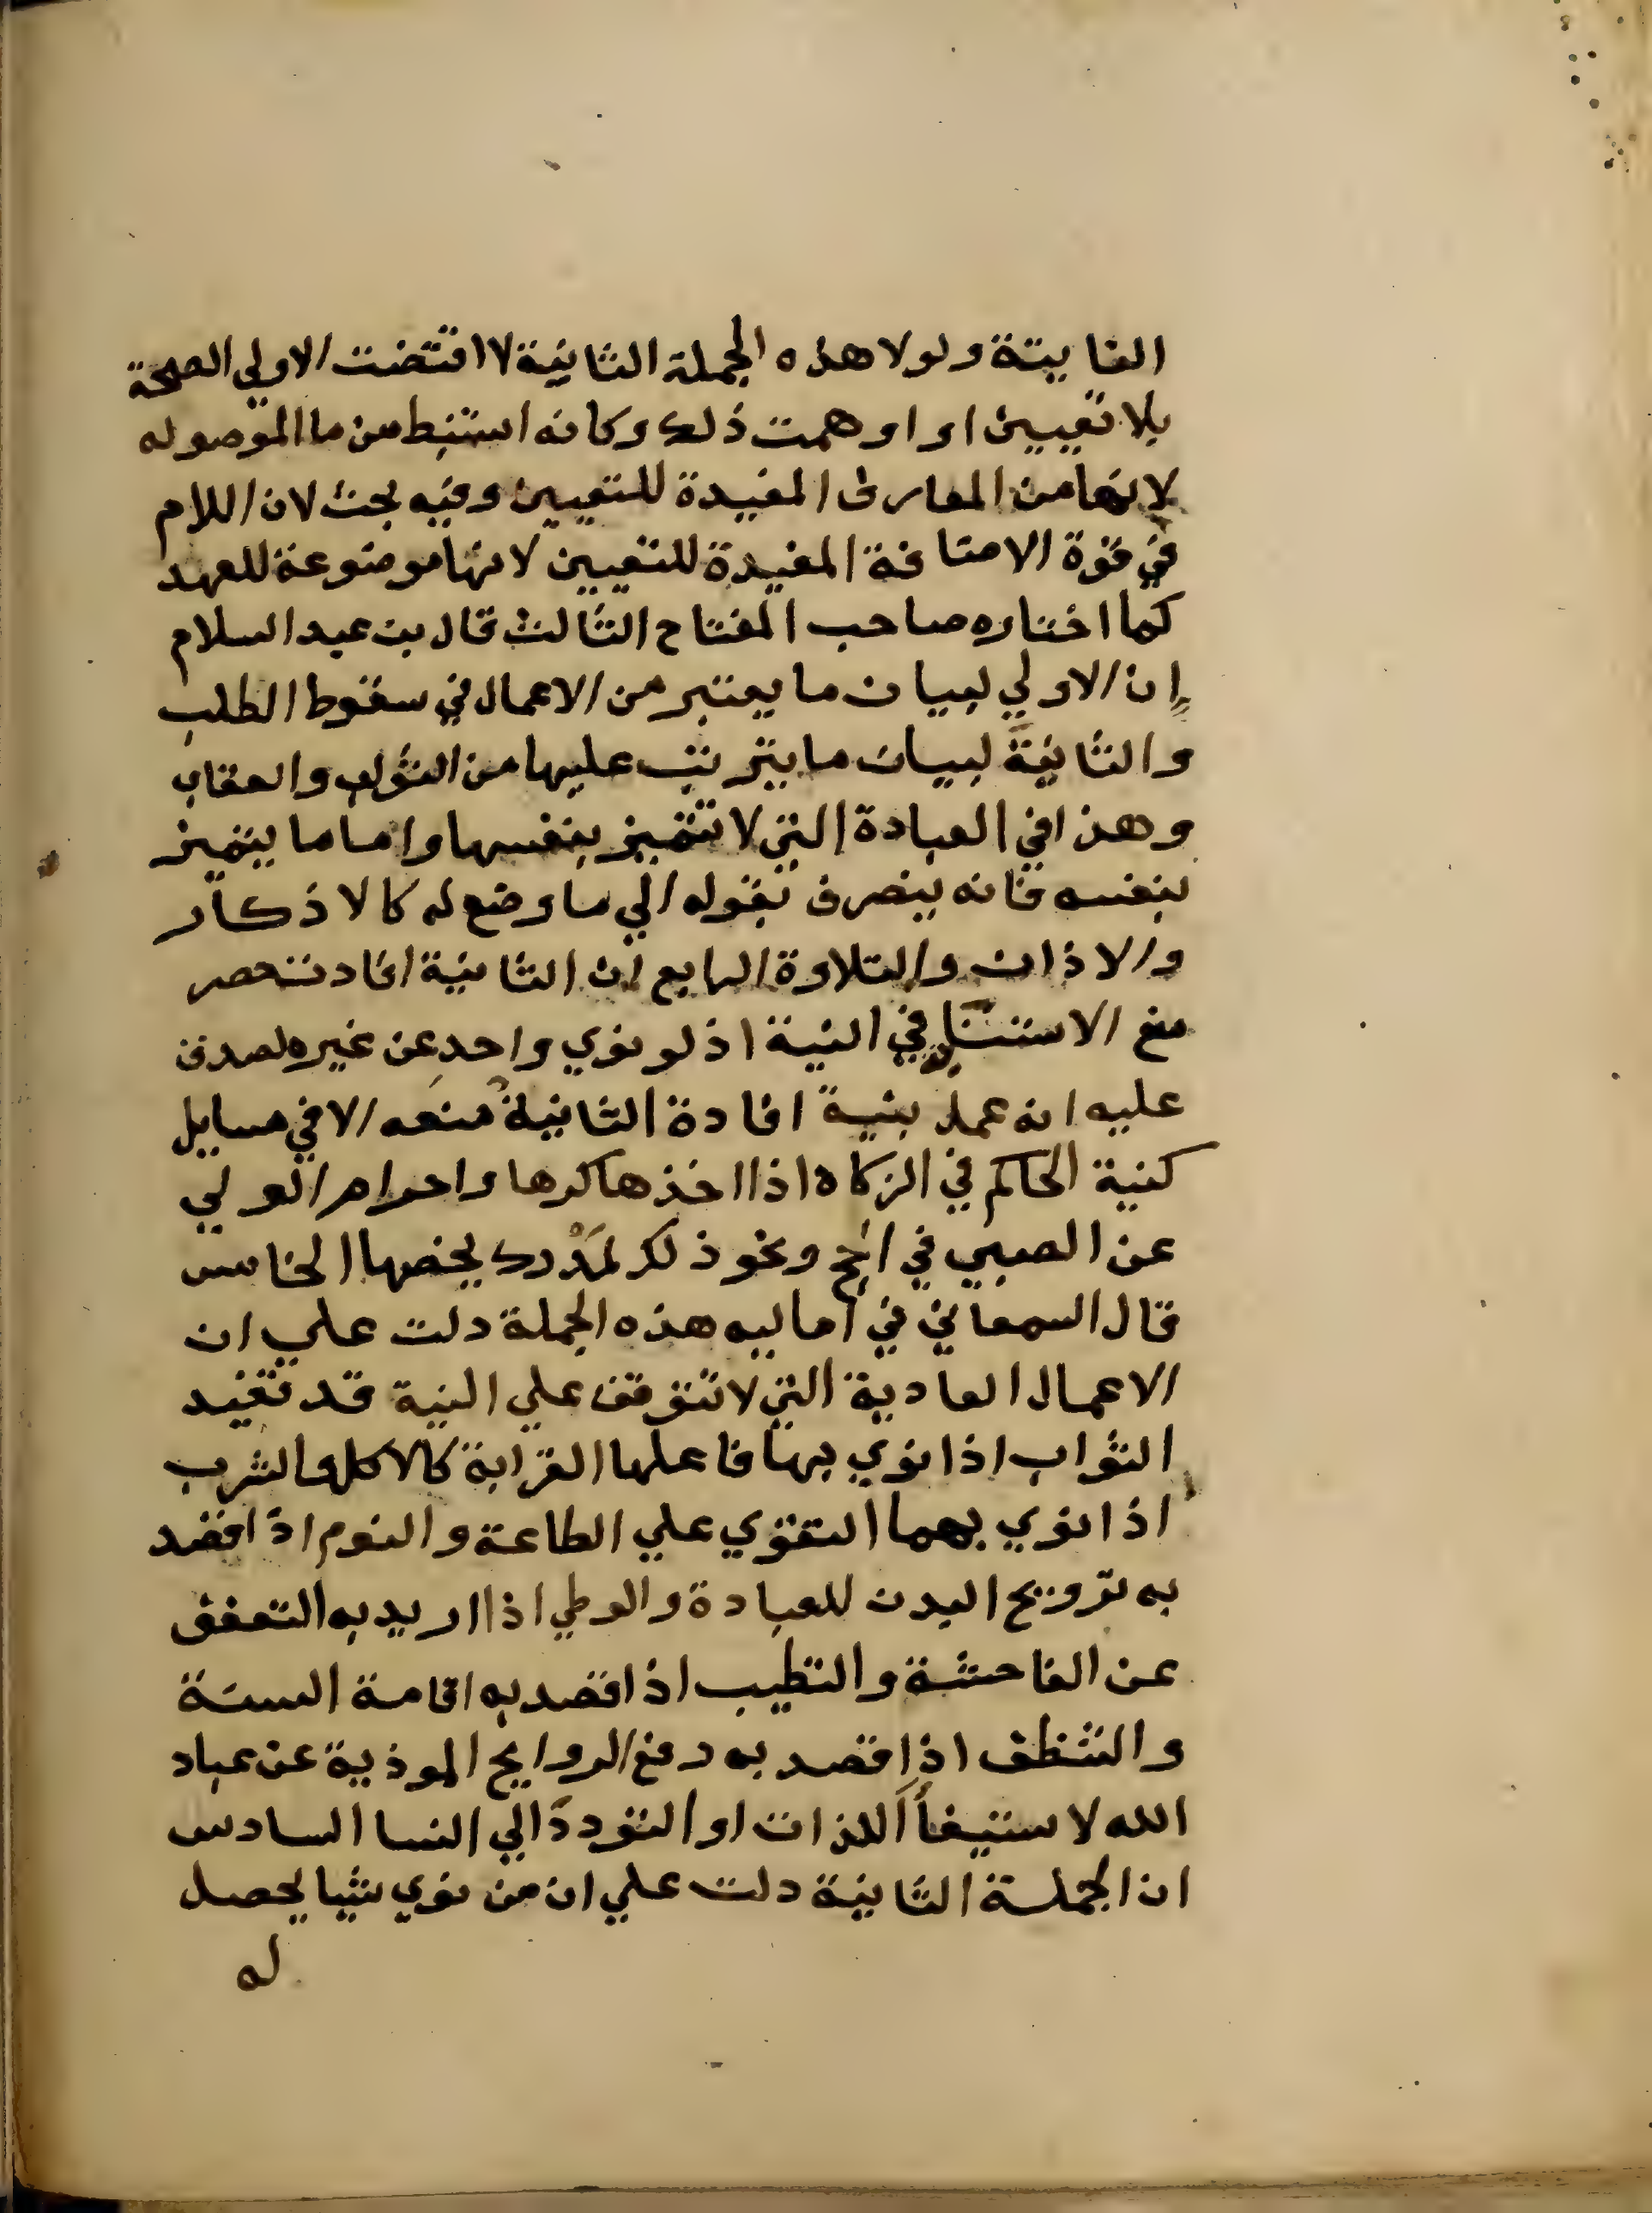 الفايتة ولولا هذه الجملة الثانية لا اقتضت الاولي الصحة
بلا تعيين او اوهمت ذلك وكانه استنبط من ما الموصوله
لانها من المعارف المفيدة للتعيين وفيه بحث لان اللام
في قوة الاضافة المفيدة للتعيين لانها موضوعة للعهد
كما اختاره صاحب المفتاح الثالث قال بن عبد السلام
إن الاولي لبيان ما يعتبر من الاعمال في سقوط الطلب
والثانية لبيان ما يترتب عليها من الثواب والعقاب
وهذا في العبادة التي لا تتميز بنفسها واما ما يتميز
بنفسه فانه ينصرف بقوله الي ما وضع له كالاذكار
والاذان والتلاوة الرابع ان الثانية افادت حصر
منع الاستنابة في النية اذ لو نوي واحد عن غيره لصدق
عليه انه عمل بنية افادة الثانية منعه الا في مسايل
كنية الحاكم في الزكاة اذا اخذها كرها واحرام الولي
عن الصبي في الحج ونحو ذلك لمَدْرك يخصها الخامس
قال السمعاني في اماليه هذه الجملة دلت علي ان
الاعمال العادية التي لا تتوقف علي النية قد تفيد
الثواب اذا نوي بها فاعلها القرابة كالاكل والشرب
اذا نوي بهما التقوي علي الطاعة والنوم اذا قصد
به ترويح البدن للعبادة والوطي اذا اريد به التعفف
عن الفاحشة والتطيب اذا قصد به اقامة السنة
والتنظف اذا قصد به دفع الروايح الموذية عن عباد
الله لا ستيفأ اللذات او التودد الي النسا السادس
ان الجملة الثانية دلت علي ان من نوي شيا يحصل
له